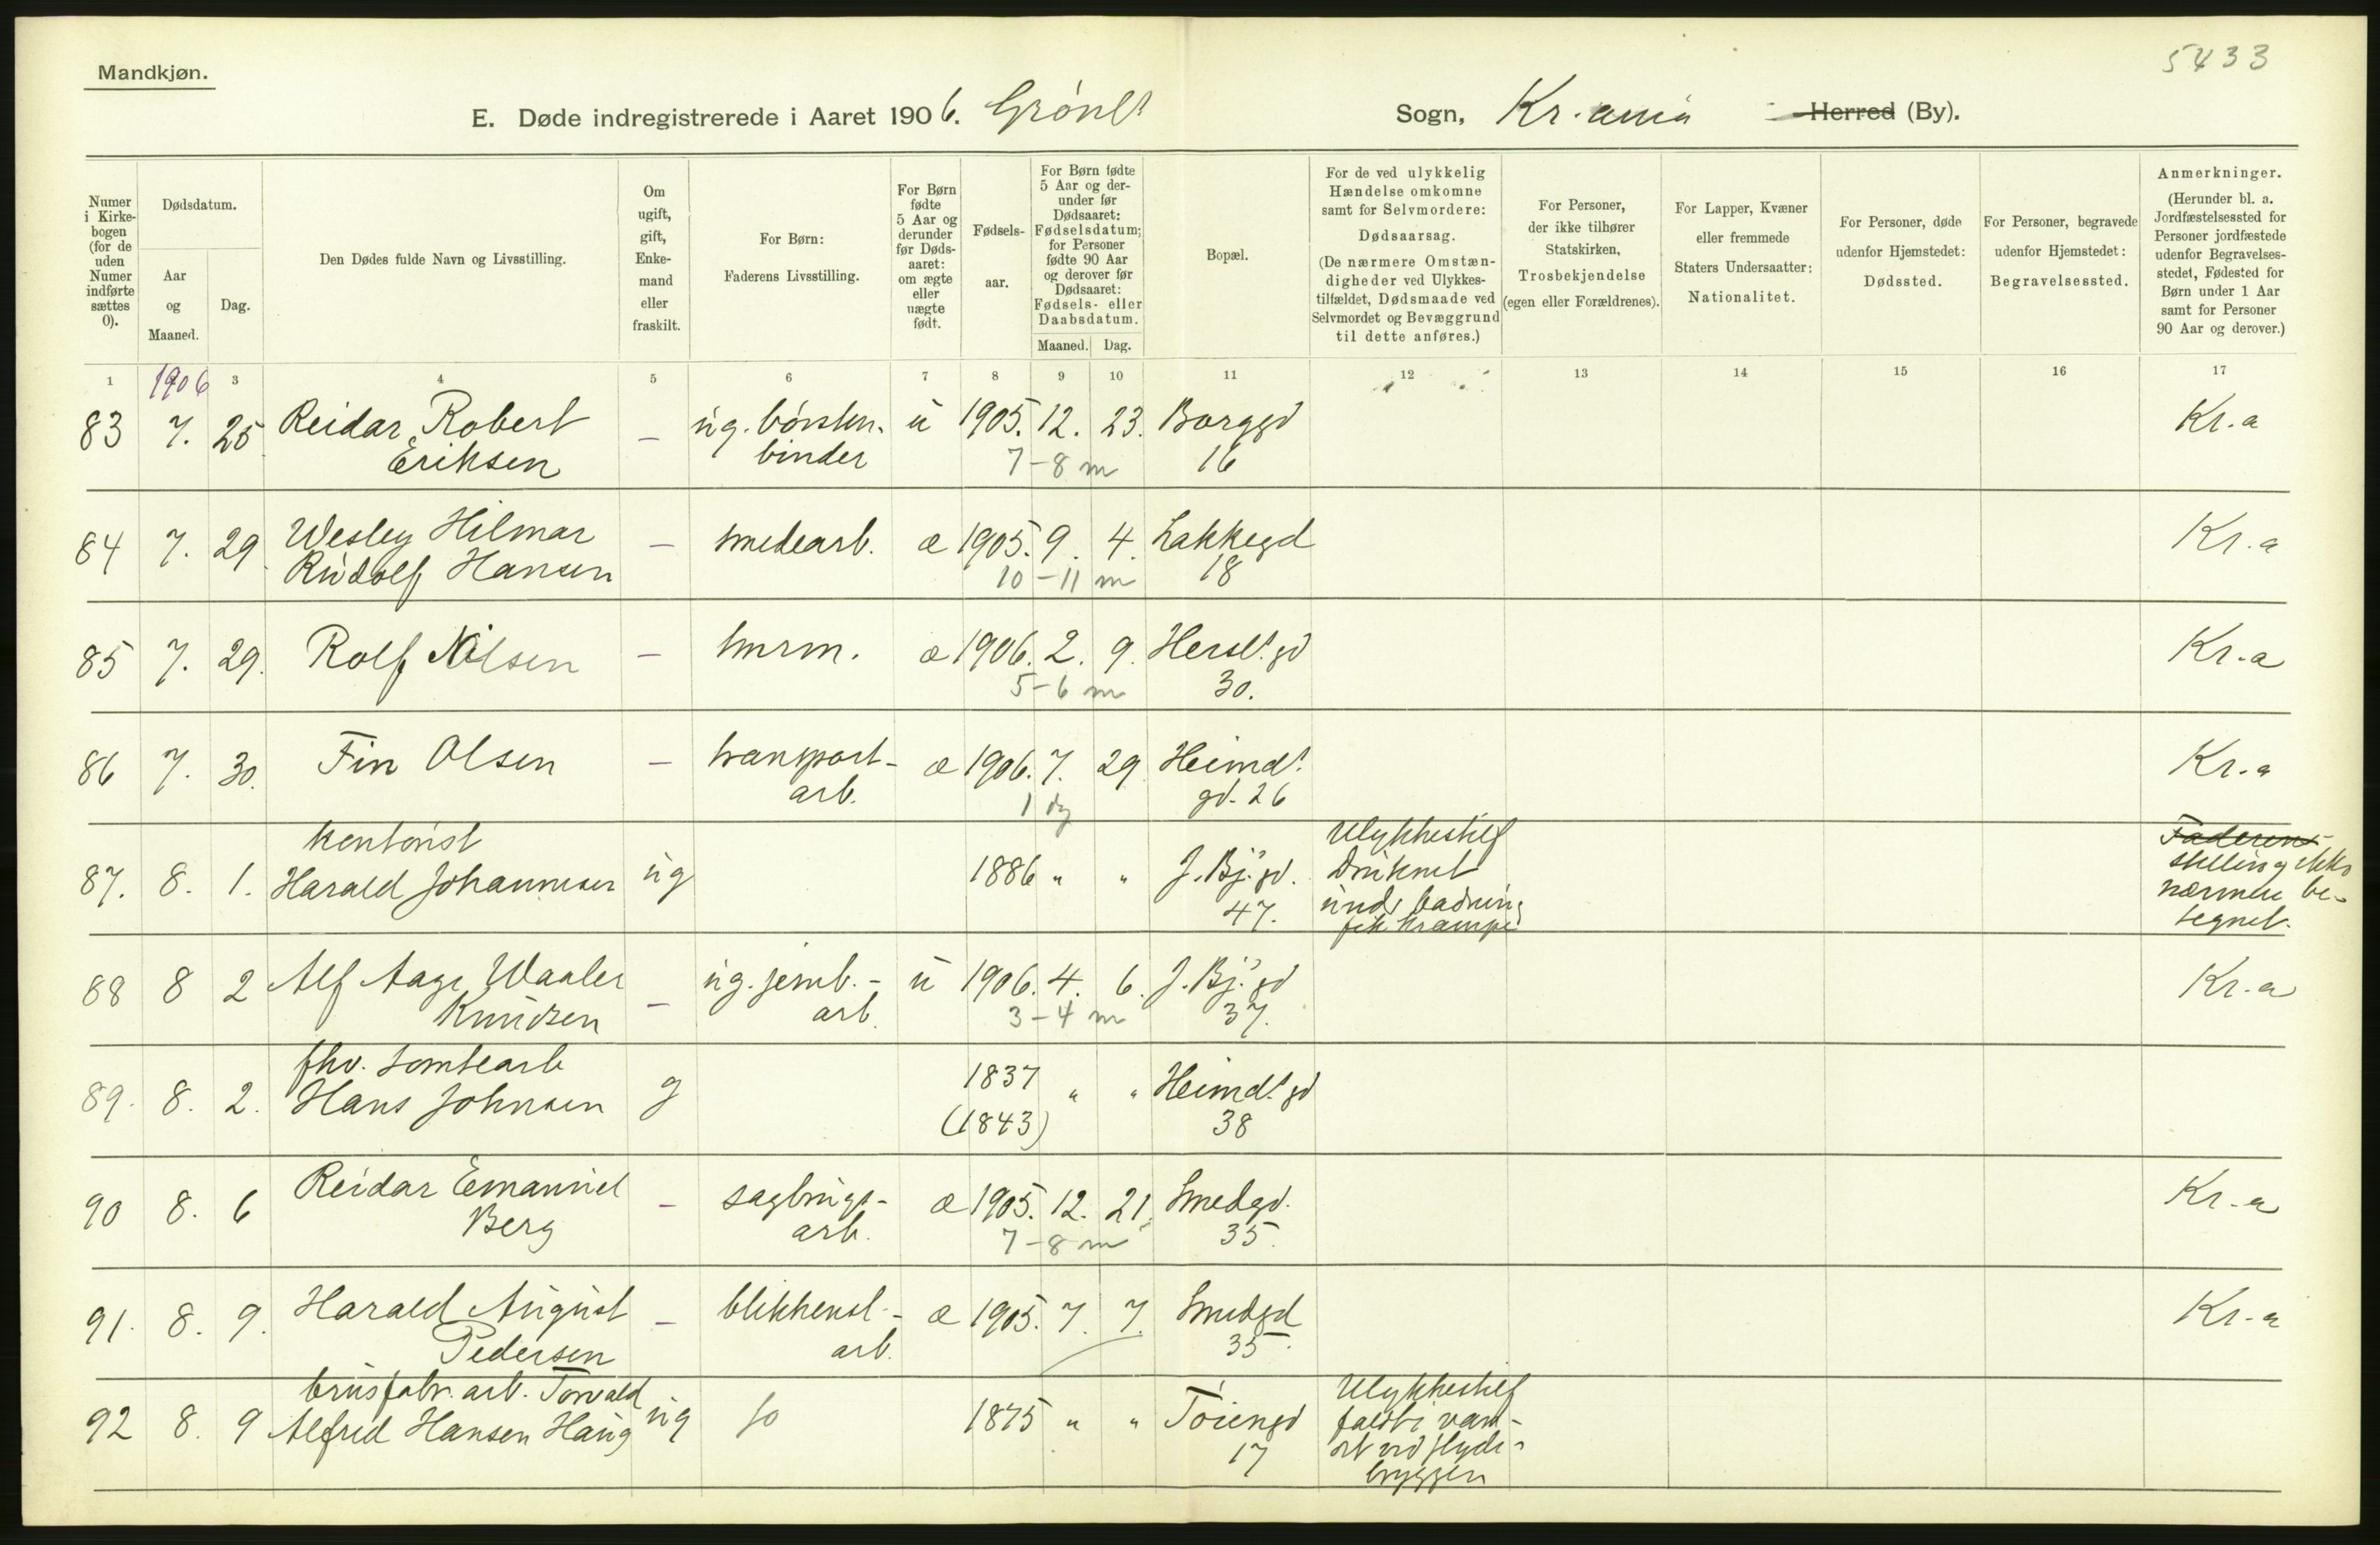 5433
Mandkjøn.
E. Døde indregistrerede i Aaret 1906. Grønl. Sogn, Kr.ania Herred (By).
Numer i Kirkebogen (for de uden Numer indførte sættes 0).
Dødsdatum.
Aar og Maaned.
Dag.
Den Dødes fulde Navn og Livsstilling.
Om ugift, gift, Enkemand eller fraskilt.
For Børn: Faderens Livsstilling.
For Børn fødte 5 Aar og derunder før Dødsaaret: om ægte eller uægte født.
Fødselsaar.
For Børn fødte 5 Aar og derunder før Dødsaaret: Fødselsdatum; for Personer fødte 90 Aar og derover før Dødsaaret: Fødsels- eller Daabsdatum.
Maaned. Dag.
Bopæl.
For de ved ulykkelig Hændelse omkomne samt for Selvmordere: Dødsaarsag. (De nærmere Omstændigheder ved Ulykkestilfældet, Dødsmaade ved Selvmordet og Bevæggrund til dette anføres.)
For Personer, der ikke tilhører Statskirken, Trosbekjendelse (egen eller Forældrenes).
For Lapper, Kvæner eller fremmede Staters Undersaatter: Nationalitet.
For Personer, døde udenfor Hjemstedet: Dødssted.
For Personer, begravede udenfor Hjemstedet: Begravelsessted.
Anmerkninger. (Herunder bl. a. Jordfæstelsessted for Personer jordfæstede udenfor Begravelsesstedet, Fødested for Børn under 1 Aar samt for Personer 90 Aar og derover.)
1 2 3 4 5 6 7 8 9 10 11 12 13 14 15 16 17
1906
83 7. 25 Reidar Robert – ug. børsten- u 1905. 12. 23. Borggd Kr.a
Eriksen binder 7-8 m 16
84 7. 29. Wesley Hilmar – smedearb. æ 1905. 9. 4. Lakkegd Kr.a
Rudolf Hansen 10-11 m 18
85 7. 29. Rolf Nilsen – murm. æ 1906. 2. 9. Hersl. gd Kr.a
5-6 m 30.
86 7. 30. Fin Olsen – transport- æ 1906. 7. 29 Heimd. Kr.a
arb. 1 dg gd. 26
kontorist Ulykkestilf Faderens
87. 8. 1. Harald Johannesen ug 1886 " " J. Bj. gd. Druknet stilling ikke
47. under badning nærmere be-
fik krampe tegnet.
88 8 2 Alf Aage Waaler – ug. jernb.- u 1906. 4. 6. J. Bj. gd Kr.a
Knudsen arb. 3-4 m 37.
fhv. tomtearb
89. 8. 2. Hans Johnsen g 1837 " " Heimd. gd
(1843) 38
90 8. 6 Reidar Emanuel – sagbrugs- æ 1905. 12. 21. Smedgd. Kr.a
Berg arb. 7-8 m 35.
91. 8. 9. Harald August – blikkensl.- æ 1905. 7. 7. Smedgd Kr.a
Pedersen arb. 35.
brusfabr. arb. Torvald Ulykkestilf
92 8. 9 Alfred Hansen Haug ug 1875 " " Tøiengd faldt i van-
17 det ved
bryggen